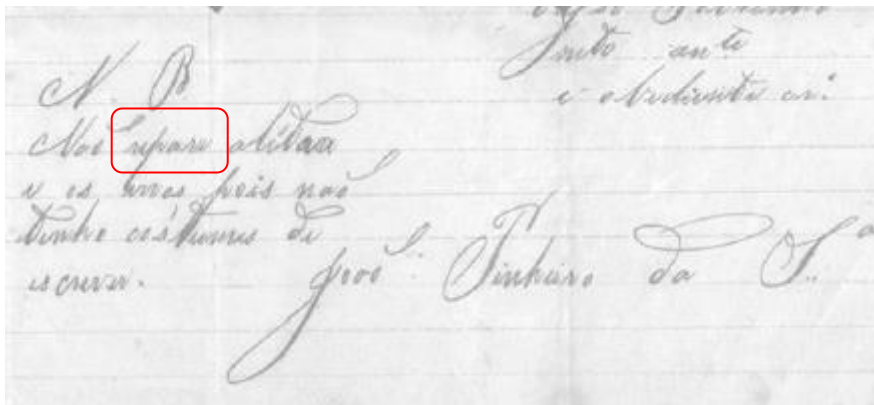 Sobrinho
muto ante
e obediente cr.º
N. B.
Naõ repare alitra
e os erros pois naõ
tenho cóstumes de
escrever.
Joaõ Pinheiro da S.ª